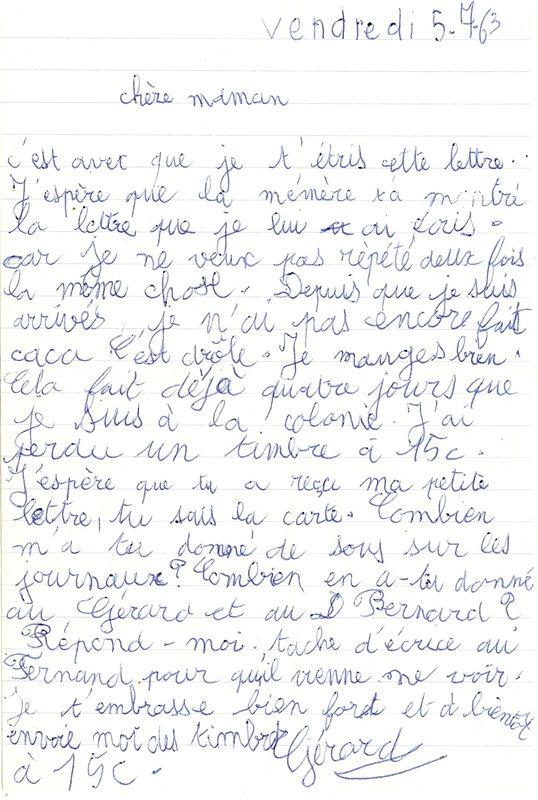 vendredi 5-7-63
chère maman
c'est avec que je t'étris cette lettre.
J'espère que la mémère ta montré
la lettre que je lui ai écris.
car je ne veux pas répété deux fois
la même chose. Depuis que je suis
arrivés, je n'ai pas encore fait
caca C'est drôle. Je manges bien.
Cela fait déjà quatre jours que
je suis à la colonie. J'ai
perdu un timbre à 15c.
J'espère que tu a reçu ma petite
lettre, tu sais la carte. Combien
m'a tu donné de sous sur les
journaux? Combien en a-tu donné
au Gérard et au Bernard?
Répond-moi. tache d'écrice au
Fernand pour qu'il vienne me voir.
je t'embrasse bien fort et à bientôt
envoie moi des timbres Gérard
à 15c.